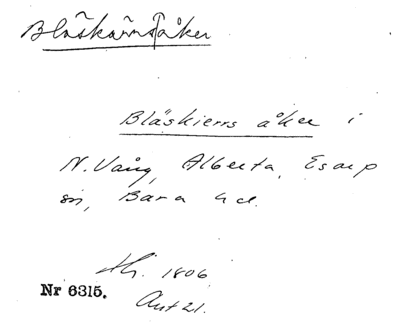 Bläskärrsåker
Bläskierrs åker i
N. Vång, Alberta, Esarp
sn, Bara hd.
1806
Nr 6315.
Akt 21.